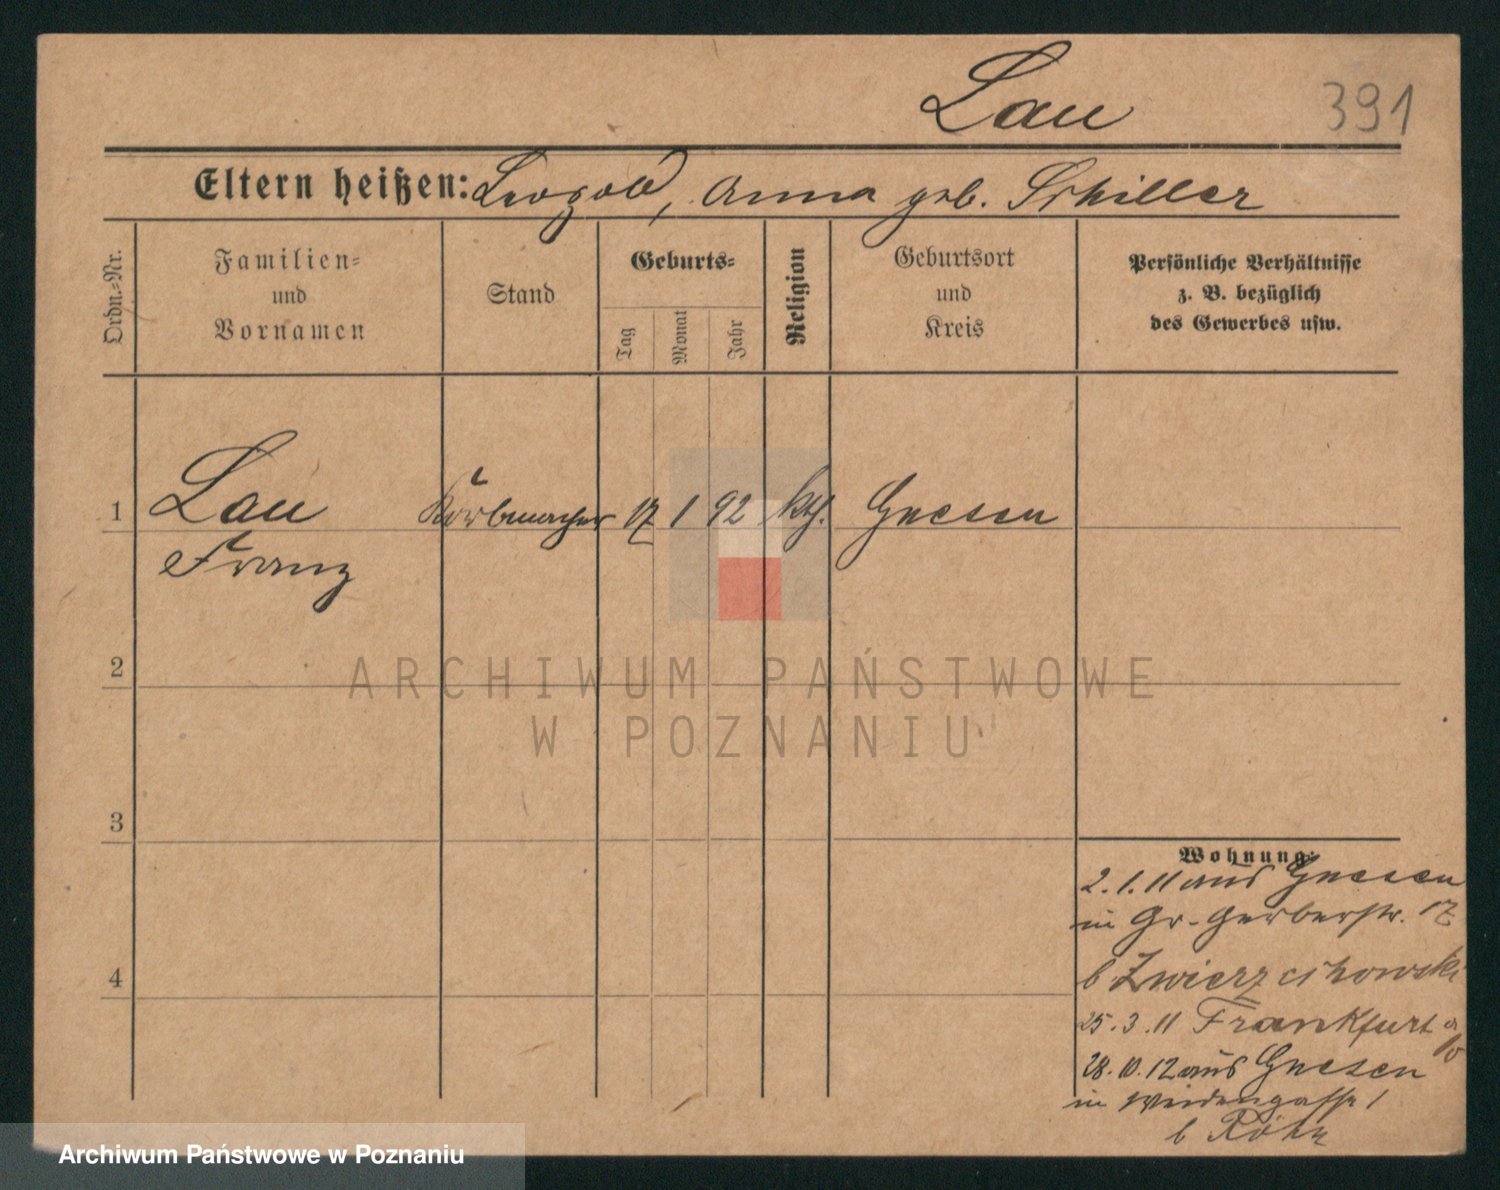 Lau
391
Eltern heißen: Leopold, Anna geb. Schiller
Ordn.-Nr.
Familien-
und
Vornamen
Stand
Geburts-
Tag
Monat
Jahr
Religion
Geburtsort
und
Kreis
Persönliche Verhältnisse
z. B. bezüglich
des Gewerbes usw.
1 Lau Korbmacher 17 1 92 kth. Gnesen
Franz
2
3
4
Wohnung:
2.1.11 aus Gnesen
in Gr. Gerberstr. 17
b Zwierzchowski
25.3.11 Frankfurt a/o
28.10.12 aus Gnesen
in Weidengasse 1
b
ARCHIWUM PAŃSTWOWE
W POZNANIU
Archiwum Państwowe w Poznaniu